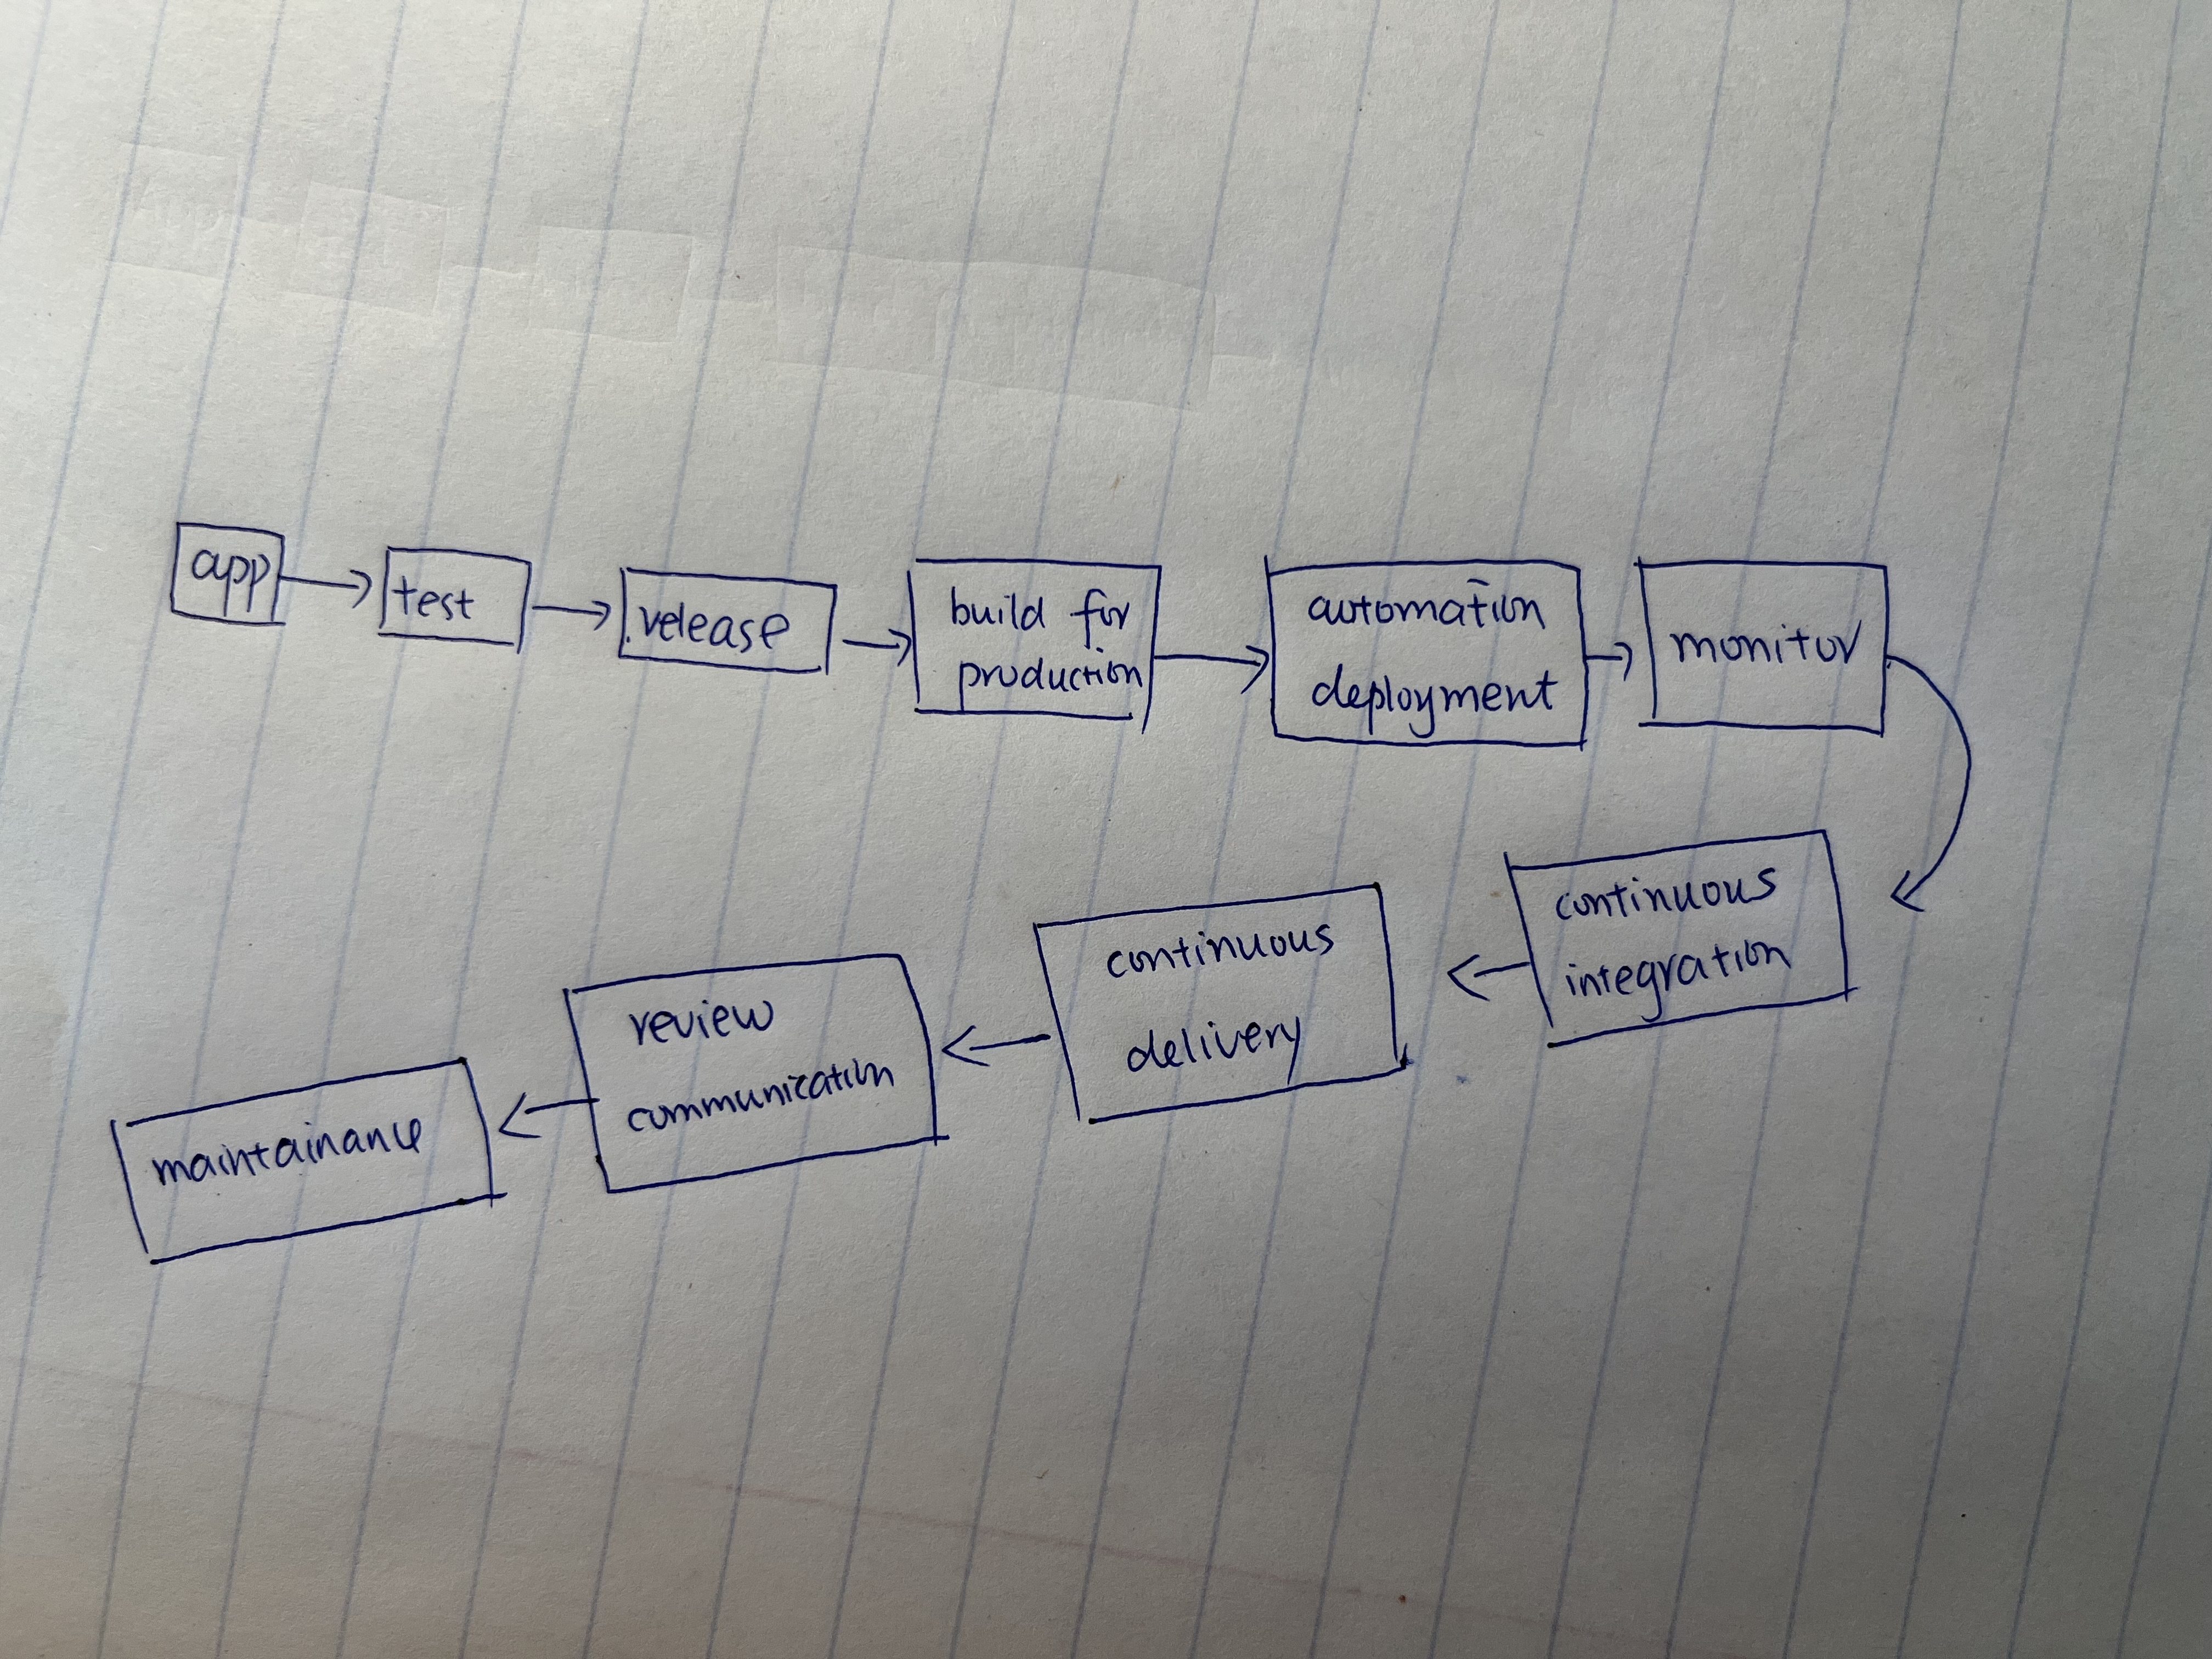 app
test
release
build for
production
automation
deployment
monitor
continuous
integration
continuous
delivery
review
communication
maintainance